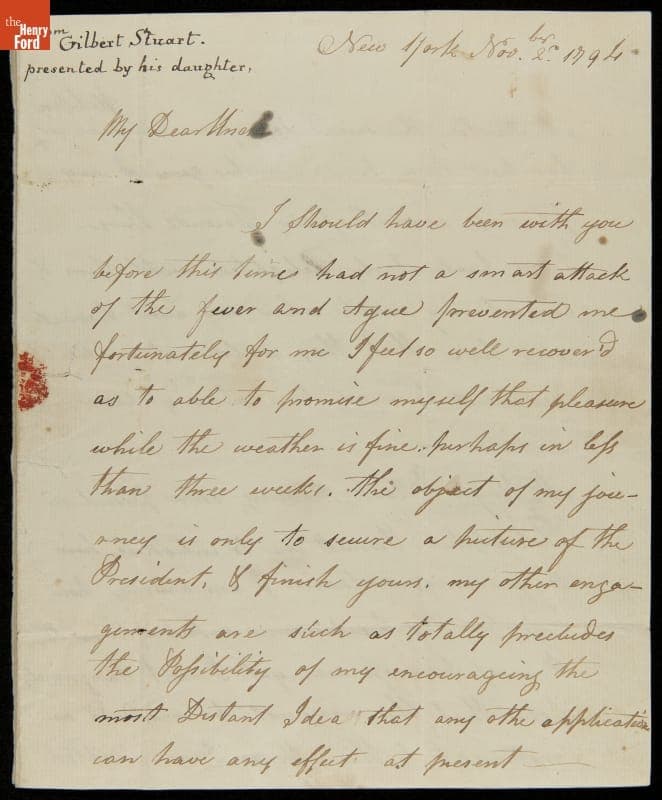 the
Henry
Ford
from
Gilbert Stuart.
presented by his daughter,
New York Novbr. 2d. 1794
My Dear Uncle
I Should have been with you
before this time had not a smart attack
of the fever and Ague prevented me
fortunately for me I feel so well recover'd
as to able to promise myself that pleasure
while the weather is fine. perhaps in less
than three weeks. The object of my jou-
rney is only to secure a picture of the
President, & finish yours. my other enga-
gements are such as totally precludes
the Possibility of my encourageing the
most Distant Idea that any othe application
can have any effect at present